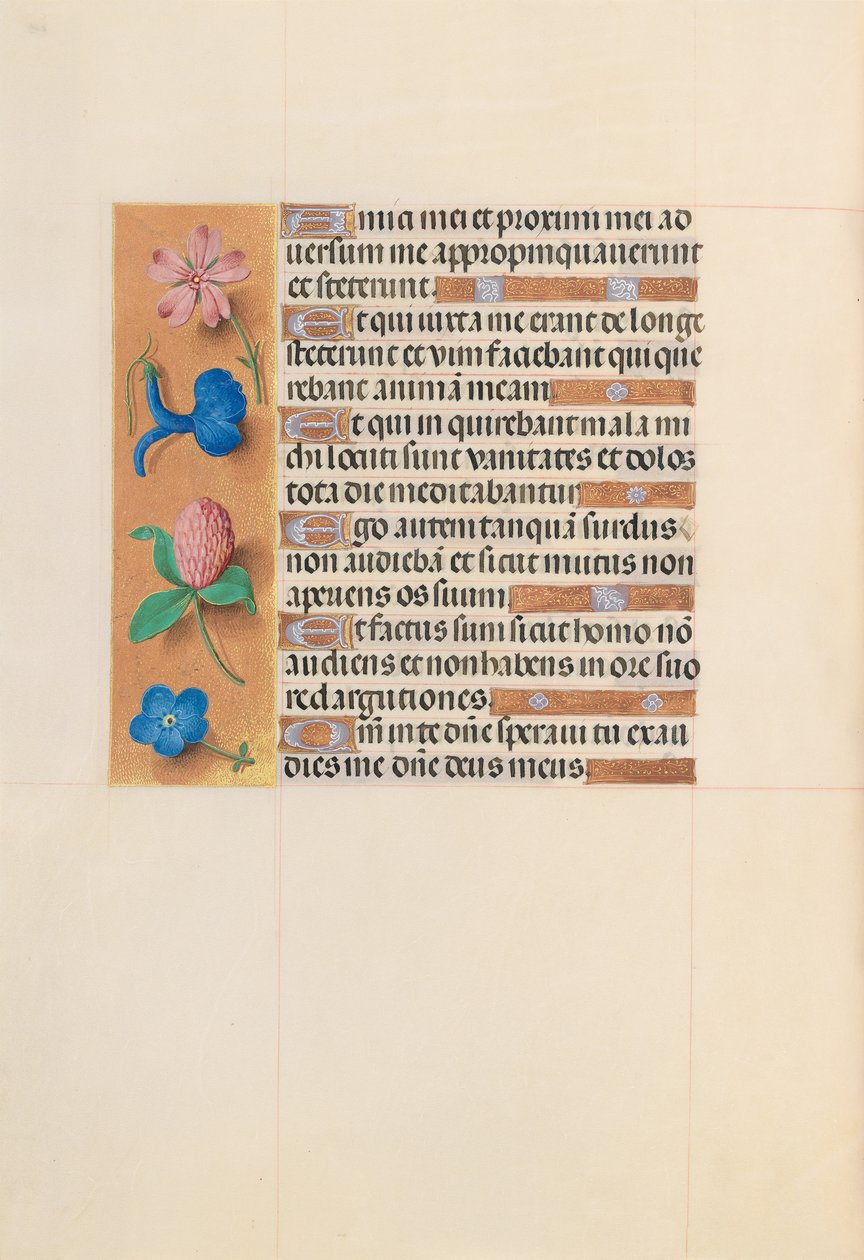 Amici mei et proximi mei ad
uersum me appropinquauerunt
et steterunt.
Et qui iuxta me erant de longe
steterunt et vim faciebant qui que
rebant animā meam
Et qui in quirebant mala mi
chi locuti sunt vanitates et dolos
tota die meditabantur
Ego autem tanquā surdus
non audiebā et sicut mutus non
aperiens os suum
Et factus sum sicut homo nō
audiens et non habens in ore suo
redargutiones.
Om̄ in te dn̄e speraui tu exau
dies me dn̄e deus meus.